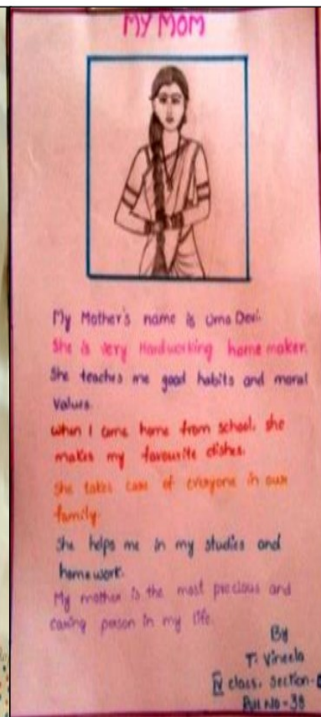 MY MOM
My Mother's name is Uma Devi.
She is very Hardworking home maker.
She teaches me good habits and moral
values.
When I come home from school, she
makes my favourite dishes.
She takes care of everyone in our
family.
She helps me in my studies and
homework.
My mother is the most precious and
caring person in my life.
By
T. Vineela
IV class, Section-
Roll No - 38